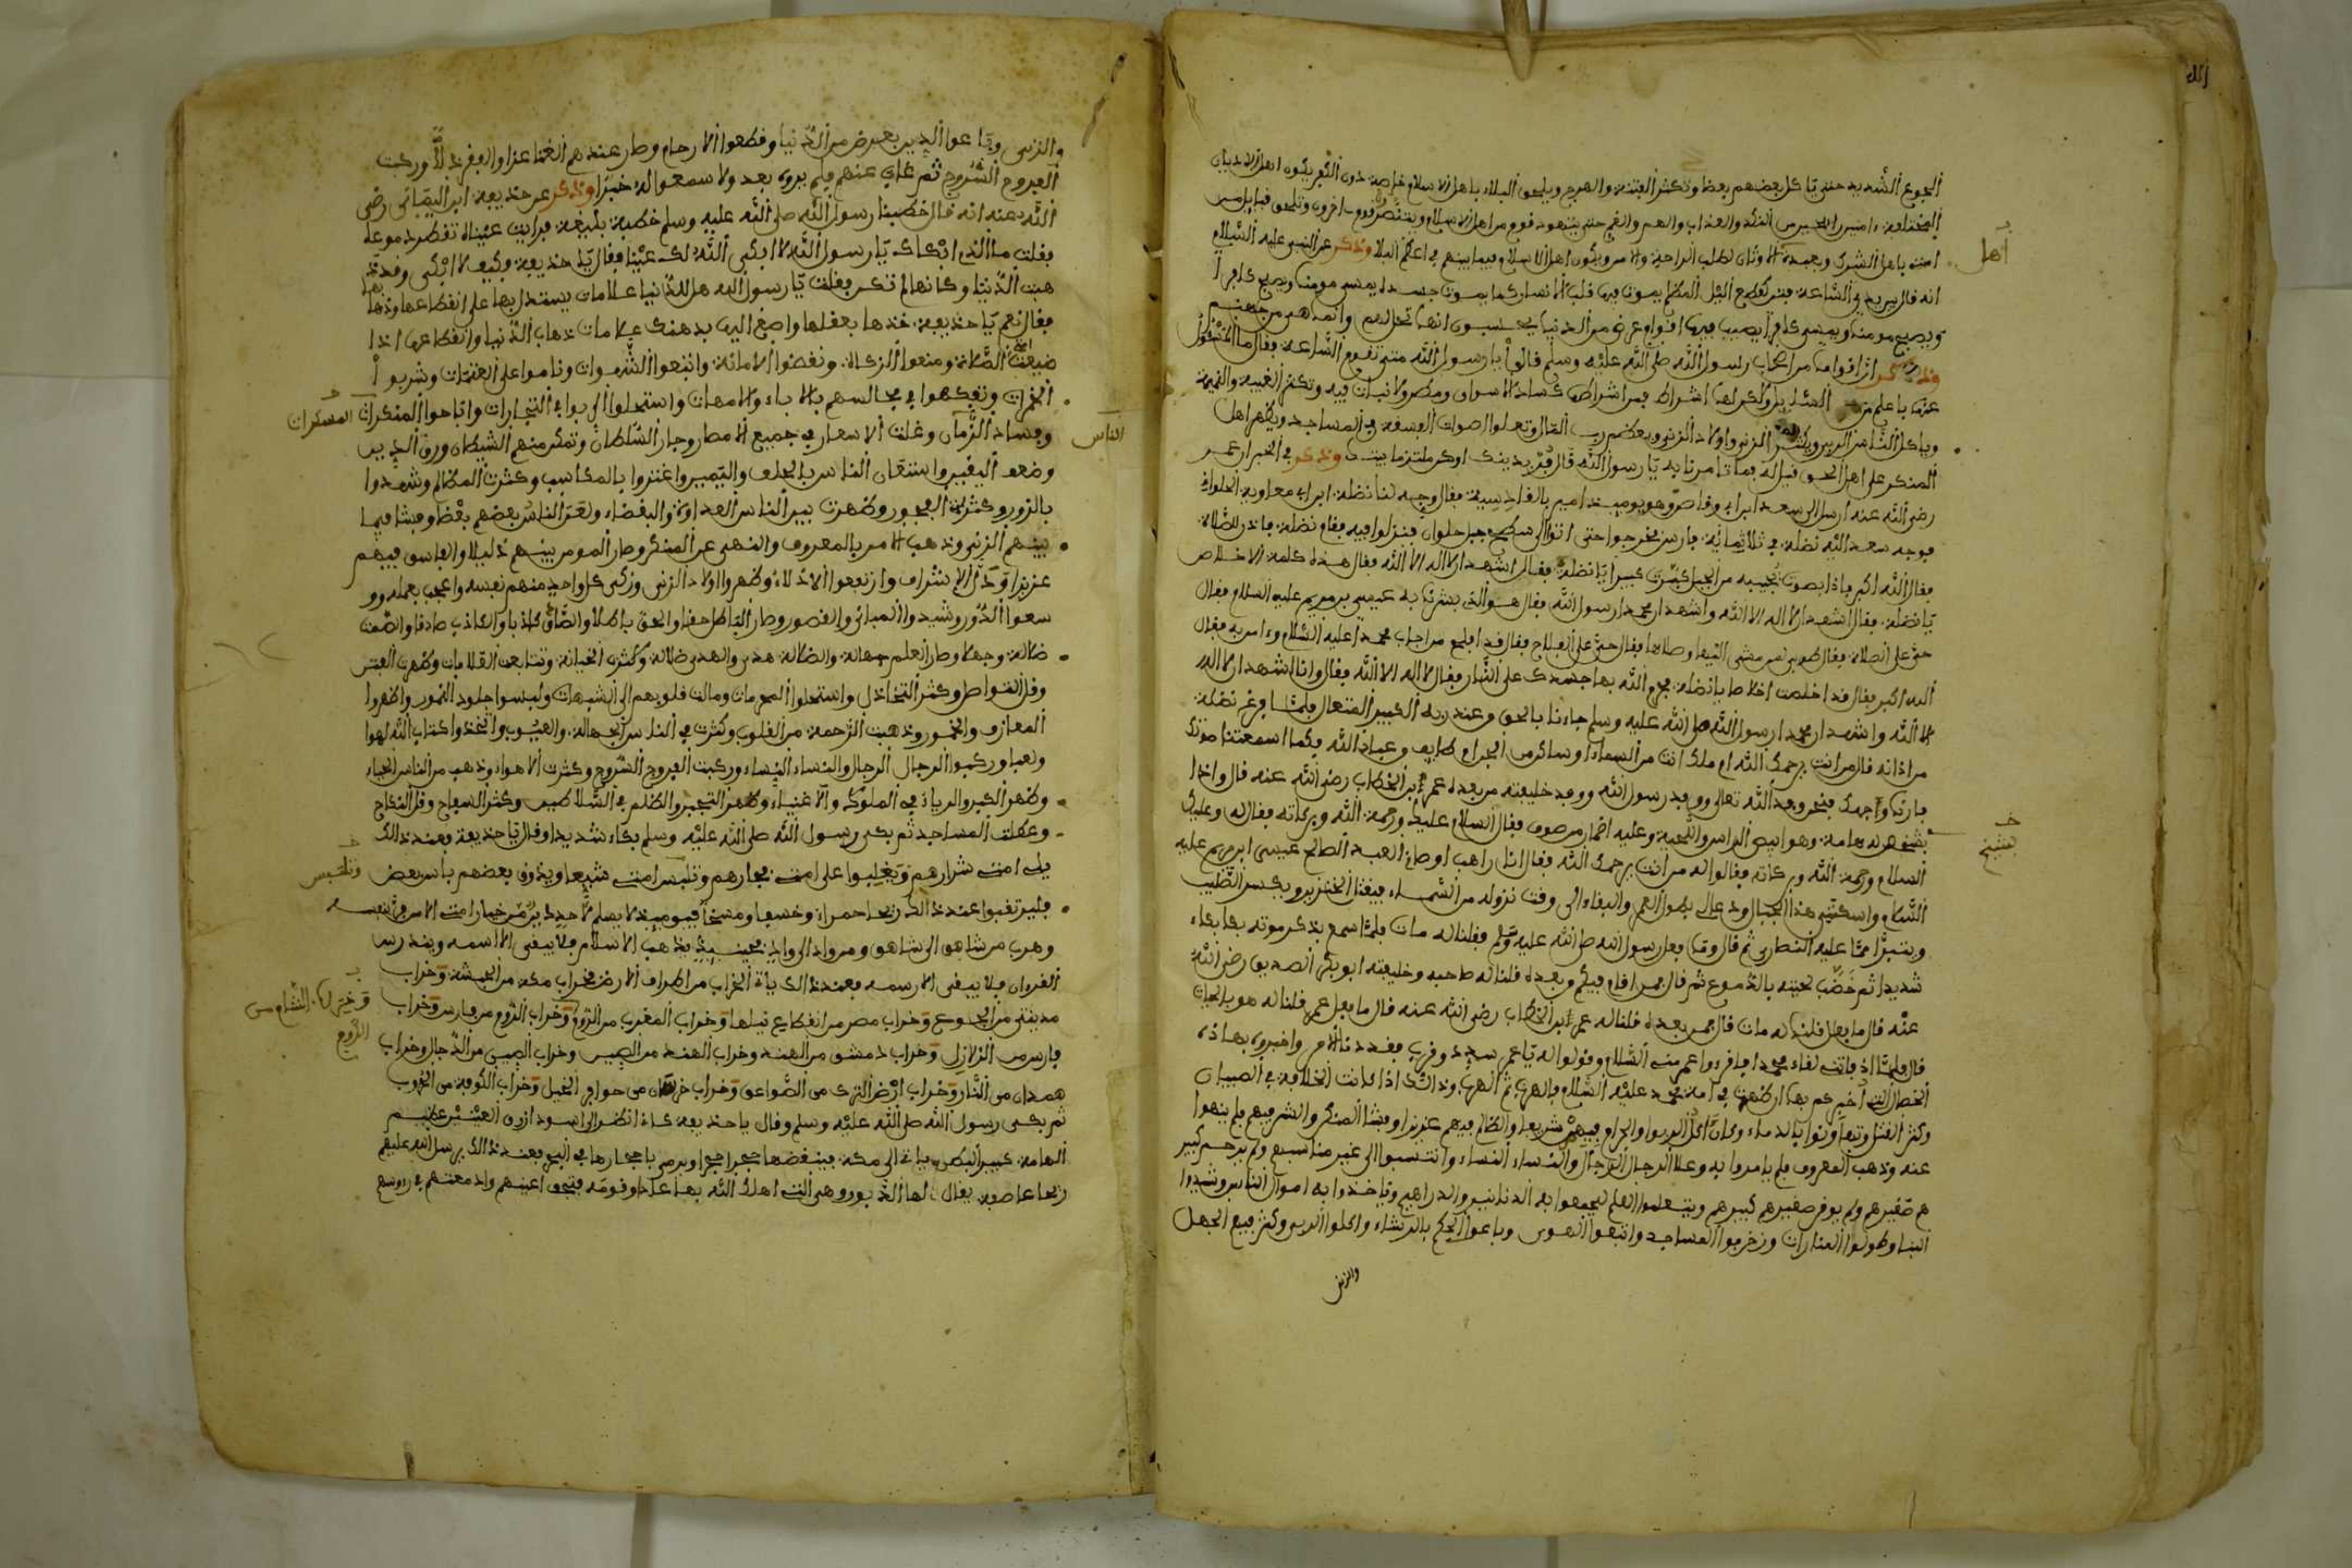 الجوع الشديد حتى ياكل بعضهم بعضا وتكثر الفتنة والهرج ويلحق البلاء باهل الاسلام خاصة دون الكفر يكون اهل الاديان
المختلفة امنين النكد والعذاب والهم والغم حتى يتهود قوم من اهل الاسلام ويتنصر قوم اخرون وتلحق قبايل من
اهل
امتى باهل الشرك وبعبدة الاوثان لطلب الراحة والامن ويكون اهل الاسلام فيما بينهم في اعظم البلا وذكر عن النبي عليه السلام
انه قال بين يدي الساعة فتن كقطع اليل المظلم يموت فيها قلب الانسان كما يموت جسده يمسي مومنا ويصبح كافرا
ويصبح مومنا ويمسي كافرا يصيب فيها اقوام عرض من الدنيا يحسبون انها تحل لهم وانما هي من جهنم
وذكر ان اقواما من اصحاب رسول الله صلى الله عليه وسلم قالوا يا رسول الله متى تقوم الساعة فقال ما المسئول
عنها باعلم من السائل ولكن لها اشراط فمن اشراطها كساد الاسواق ومطر ولا نبات فيه وتكثر الغيبة والنميمة
وياكل الناس الربى ويكثر الزنى واولاد الزنى ويعظم رب المال وتعلوا اصوات الفسقة في المساجد ويظهر اهل
المنكر على اهل الحق قيل له فما تامرنا به يا رسول الله قال فر بدينك او كن ملتزما بيتك وذكر في الخبر ان عمر
رضي الله عنه ارسل الى سعد ابن ابي وقاص وهو يوميذ امير بالقادسية فقال وجه لنا نضلة ابن ابي معاوية الى حلوان
فوجه سعد الله نضلة في ثلاثمائة فارس فخرجوا حتى اتوا الى سطح جبل حلوان فنزلوا فيه فقام نضلة فاذن للصلاة
فقال الله اكبر فاذا بصوت يجيبه من الجبل كبرت كبيرا يا نضلة فقال اشهد ان لا اله الا الله فقال هذه كلمة الاخلاص
يا نضلة فقال اشهد ان لا اله الا الله واشهد ان محمدا رسول الله فقال هو الذي بشرنا به عيسى بن مريم عليه السلام فقال
حي على الصلاة فقال طوبى لمن مشى اليها وصلاها فقال حي على الفلاح فقال قد افلح من اجاب محمدا عليه السلام وامن به فقال
الله اكبر فقال قد اخلصت اخلاصا يا نضلة فحرم الله بها جسدك على النار فقال لا اله الا الله فقال وانا اشهد ان لا اله
الا الله واشهد ان محمدا رسول الله صلى الله عليه وسلم جاءنا بالحق من عند ربه الكبير المتعال فلما فرغ نضلة
من اذانه قال من انت يرحمك الله ام ملك انت من السماء او ساكن من الجن ام طايف من عباد الله فكما اسمعتنا صوتك
فارنا وجهك فنحن وفد الله تعالى ووفد رسول الله ووفد خليفته من بعده عمر ابن الخطاب رضي الله عنه قال واذا
بشيخ له هامة وهو ابيض الراس واللحية وعليه اطمار من صوف فقال السلام عليكم ورحمة الله وبركاته فقال له وعليك
بشيخ
السلام ورحمة الله وبركاته فقالوا له من انت يرحمك الله فقال انا راهب اوصاني العبد الصالح عيسى ابن مريم عليه
السلام واسكنني هذا الجبال ودعا لي بطول العمر والبقاء الى وقت نزوله من السماء فيقتل الخنزير ويكسر الصليب
ويتبرا مما عليه النصارى ثم قال وما فعل رسول الله صلى الله عليه وسلم فقلنا له مات فلما سمع بذكر موته بكا بكاء
شديدا ثم خضب لحيته بالدموع ثم قال من اقام فيكم من بعده قلنا له صاحبه وخليفته ابو بكر الصديق رضي الله
عنه قال ما فعل قلنا له مات قال فمن بعده قلنا له عمر ابن الخطاب رضي الله عنه قال ما فعل عمر قلنا له هو بالحياة
قال فلما اذ فاتني لقاء محمد فاقرءوا عمر مني السلام وقولوا له يا عمر سدد وقرب فقد دنا الامر واخبروه بهاذه
الخصال التي اخبركم بها ان ظهرت في امة محمد عليه السلام فالهرب ثم الهرب وذالك اذا كانت الخلافة في الصبيان
وكثر القتل وتهاونوا بالدماء وكان اكل الربوا والحرام فيهم شريعا والظالم فيهم عزيزا وفشا المنكر والشر فيهم فلم ينهوا
عنه وذهب المعروف فلم يامروا به وعلا الرجال الرجال والنساء النساء وانتسبوا الى غير مناسبهم ولم يرحم كبير
هم صغيرهم ولم يوقر صغيرهم كبيرهم ويتعلموا العلم ليجمعوا به الدنانير والدراهم وياخذوا به اموال الناس وشيدوا
البناء وطولوا المنارات وزخرفوا المساجد واتبعوا الهوى وباعوا الحكم بالرشاء واكلوا الربى وكثر فيهم الجهل
والزنى
والزنى وباعوا الدين بعرض من الدنيا وقطعوا الارحام وصار عندهم الغنا عزا والفقر ذلا وركبت
الفروج السروج ثم غاب عنهم فلم يروه بعد ولا سمعوا له خبرا وذكر عن حذيفة ابن اليماني رضي
الله عنه انه قال خطبنا رسول الله صلى الله عليه وسلم خطبة بليغة فرايت عيناه تقطر دموعا
فقلت ما الذي ابكاك يا رسول الله لا ابكى الله لك عينا فقال يا حذيفة وكيف لا ابكي وقد ذ
هبت الدنيا وكانها لم تكن فقلت يا رسول الله هل للدنيا علامات يستدل بها على انقطاعها وذهابها
فقال نعم يا حذيفة خذها بعقلها واصغ اليها بذهنك علامات ذهاب الدنيا وانقطاعها اذا
ضيعت امتي الصلاة ومنعوا الزكاة ونقضوا الامانة واتبعوا الشهوات وناموا على العتمات وشربوا ا
لخمرات وتفكهوا في مجالسهم بالاباء والامهات واستحلوا الربوا في التجارات واباحوا المنكرات
المسكرات
وفساد الزمان وغلت الاسعار في جميع الامصار وجار السلطان وتمكن منهم الشيطان ورق الدين
الناس
وضعف اليقين واستعان الناس بالحلف واليمين واغتروا بالمكاسب وكثرت المظالم وشهدوا
بالزور وكثرت الفجور وظهرت بين الناس العداوة والبغضاء ولعن الناس بعضهم بعضا وفشا فيما
بينهم الزنى وذهب الامر بالمعروف والنهي عن المنكر وصار المومن بينهم ذليلا والفاسق فيهم
عزيزا وذل الاشراف وارتفعوا الاذلاء وظهروا اولاد الزنى وزكى كل واحد منهم نفسه واعجب بعمله وو
سعوا الدور وشيدوا المباني والقصور وصار الباطل حقا والحق باطلا والصادق كاذبا والكاذب صادقا والصمت
ضلالة وجهلا وصار العلم جهالة والضلالة هدى والهدى ضلالة وكثرت الخيانة وتتابعت العلامات وظهرت الفتن
وقل التواصل وكثر التخاذل واستحلوا المحرمات ومالت قلوبهم الى الشبهات ولبسوا جلود النمور واظهروا
المعازف والخمور وذهبت الرحمة من القلوب وكثرت في الناس الجهالة والعيوب واتخذوا كتاب الله لهوا
ولعبا وركبوا الرجال الرجال والنساء النساء وركبت الفروج السروج وكثرت الاهواء وذهب من الناس الحياء
وظهر الكبر والريا في الملوك والاغنياء وظهر التجبر والظلم في السلاطين وكثر السفاح وقل النكاح
وعطلت المساجد ثم بكى رسول الله صلى الله عليه وسلم بكاء شديدا وقال يا حذيفة فعند ذالك
يلي امتى شرارهم وتغلبوا على امتى فجارهم وتلبس امتى شيعا ويذوق بعضهم باس بعض
وتلتبس
فليرتقبوا عند ذالك ريحا حمراء وخسفا ومسخا فيوميذ لا يسلم لاحد دين من خيار امتى الا من فر بنفسه
وهرب من شاهق الى شاهق ومن واد الى واد فحينيذ يذهب الاسلام فلا يبقى الا اسمه ويندرس
القرءان فلا يبقى الا رسمه فعند ذالك ياتي الخراب من اطراف الارض فخراب مكة من الحبشة وخراب
مدينتى من الجوع وخراب مصر من انقطاع نيلها وخراب المغرب من الروم وخراب الروم من فارس وخراب
وخراب الشام من
الروم
فارس من الزلازل وخراب دمشق من الهند وخراب الهند من الصين وخراب الصين من الدجال وخراب
همدان من النار وخراب ارض الترك من الصواعق وخراب خراسان من حوافر الخيل وخراب الكوفة من الحروب
ثم بكى رسول الله صلى الله عليه وسلم وقال يا حذيفة كاني انظر الى اسود ازرق العينين عظيم
الهامة كبير البطن ياتي الى مكة فينقضها حجرا حجرا ويرمي باحجارها في البحر فعند ذالك يرسل الله عليهم
ريحا عاصفة يقال لها الدبور وهي التي اهلك الله بها عادا وقومه